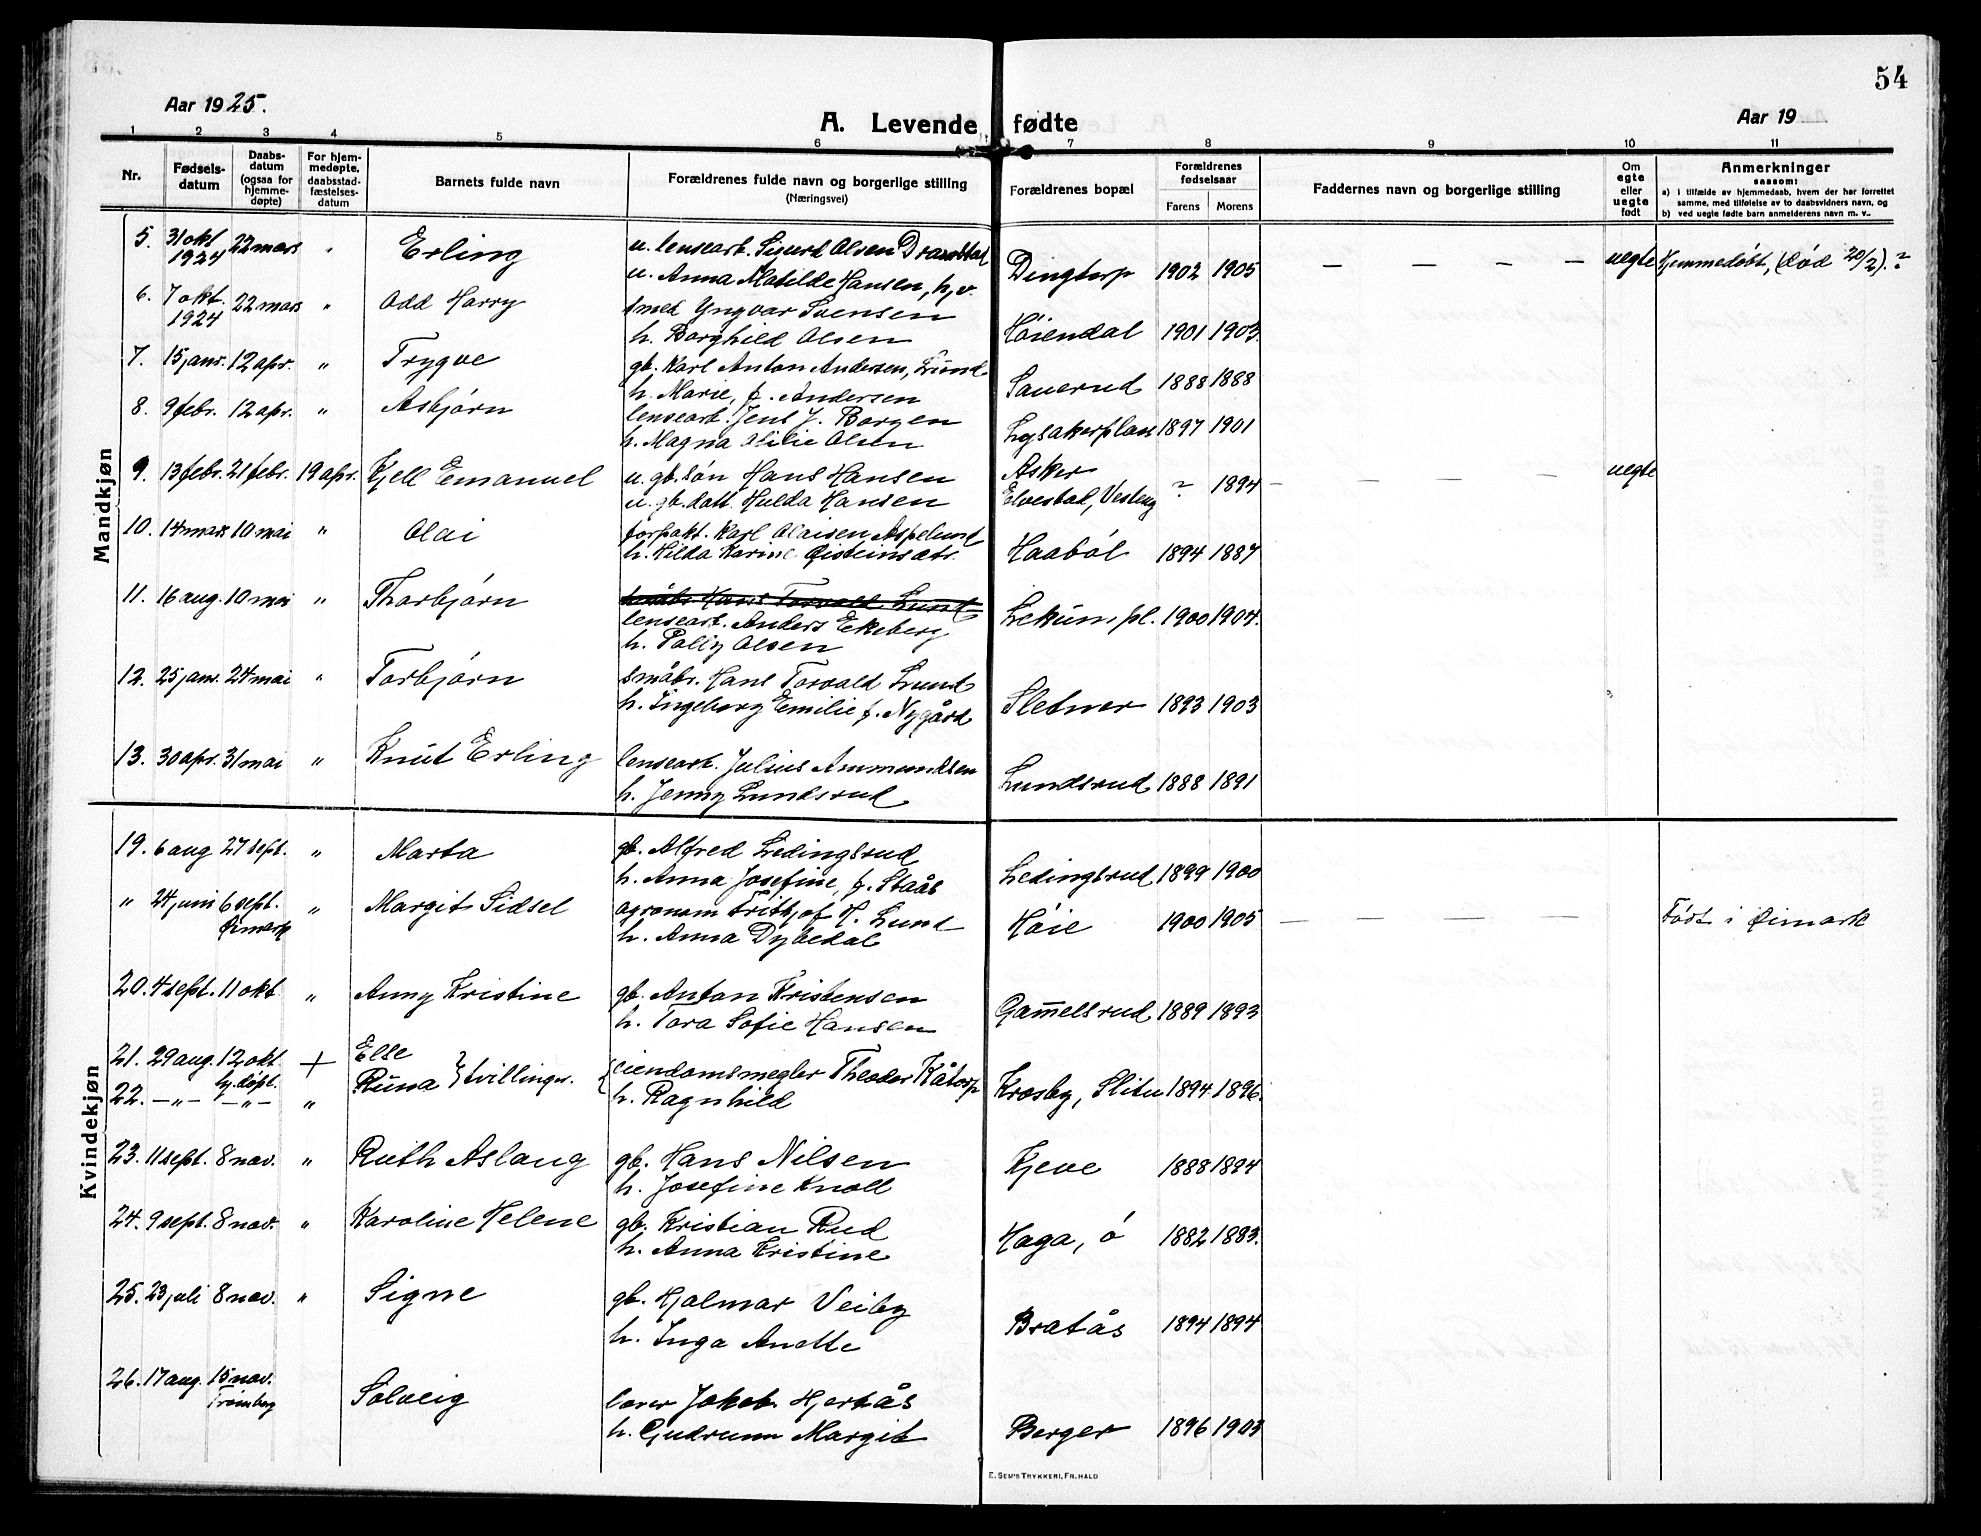 54
Aar 1925.
A. Levende fødte
Aar 19
1 2 3 4 5 6 7 8 9 10 11
Nr.
Fødsels-
datum
Daabs-
datum
(ogsaa for
hjemme-
døpte)
For hjem-
medøpte,
daabsstad-
fæstelses-
datum
Barnets fulde navn
Forældrenes fulde navn og borgerlige stilling
(Næringsvei)
Forældrenes bopæl
Forældrenes
fødselsaar
Farens Morens
Faddernes navn og borgerlige stilling
Om
egte
eller
uegte
født
Anmerkninger
saasom:
a) i tilfælde av hjemmedaab, hvem der har forrettet
samme, med tilføielse av to daabsvidners navn, og
b) ved uegte fødte barn anmelderens navn m. v..
Mandkjøn
5. 31 okt 1924 22 mars " Erling
u. lensearb. Sigurd Olsen
u. Anna Matilde Hansen, h, v.
Dingtorp 1902 1905 — — — — uegte Hjemmedøbt, (død 20/2).?
6. 7 okt. 1924 22 mars " Odd Harry
smed Yngvar Svensen
h. Borghild Olsen
Høiendal 1901 1903.
7. 15 janr. 12 apr. " Trygve
gb. Karl Anton Andersen, Lund
h. Marie, f. Andersen
Sauerud 1888 1888
8. 9 febr. 12 apr. " Asbjørn
lensearb. Jens J. Borgen
h. Magna Olsen
Lysakerplass 1897 1901
9. 13 febr. 21 febr. 19 apr. Kjell Emanuel
u. gb. søn Hans Hansen
u. gb. datt. Hulda Hansen
Asker
Elvestad, ? 1894 — — — — uegte
10. 14 mars 10 mai " Olai
forpakt. Karl Olaisen Aspelund
h. Hilda Karine Øisteinsætr.
Haabøl 1894 1887
11. 16 aug. 10 mai " Thorbjørn
småbr. Hans Torvald Lund
lensearb. Anders Ekeberg
h. Polly Olsen
Lekum pl. 1900 1904.
12. 25 janr. 24 mai " Torbjørn
småbr. Hans Torvald Lund
h. Ingeborg Emilie f. Nygård
Sletner 1893 1903
13. 30 apr. 31 mai " Knut Erling
lensearb. Julius Ammundsen
h. Jenny Lundsrud
Lundsrud 1888 1891
Kvindekjøn
19. 6 aug 27 sept. " Marta
gb. Alfred Ledingsrud
h. Anna Josefine, f. Staås
Ledingsrud 1899 1900
" 24 juni 6 sept. Øimark " Margit Sidsel
agronom Fritjof H. Lund
h. Anna Dybedal
Høie 1900 1905 — — — — — Født i Øimark
20. 4 sept. 11 okt. " Anny Kristine
gb. Anton Kristensen
h. Tora Sofie Hansen
Gam̄elsrud 1889 1893
21. 29 aug. 12 okt. + Else
hj. døpt.
22. — " — — " — " Runa } tvillinger.
{ eiendomsmegler Theodor Kåtorp
h. Ragnhild
Krosby, Slitu 1894 1896.
23. 11 sept. 8 nov. " Ruth Aslaug
gb. Hans Nilsen
h. Josefine Knoll
Kjeve 1888 1894
24. 9 sept. 8 nov. " Karoline Helene
gb. Kristian Rud
h. Anna Kristine
Haga, ö 1882 1883.
25. 23 juli 8 nov. " Signe
gb. Hjalmar Veiby
h. Inga Anette
Bratås 1894 1894
26. 17 aug. 15 nov. Trømborg Solveig
lærer Jakob Hjertås
h. Gudrunn Margit
Berger 1896 1903
E. SEM'S TRYKKERI, FR. HALD